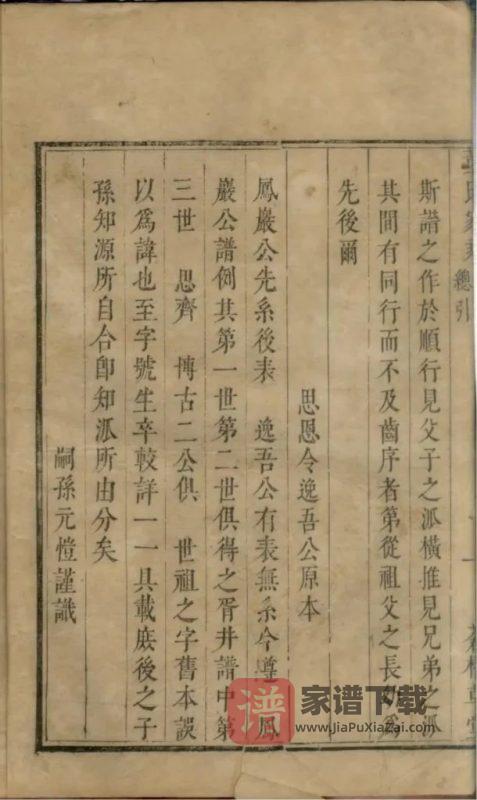 斯譜之作於順行見父子之派橫推見兄弟之派
其間有同行而不及齒序者第從祖父之長幼為
先後爾
思恩令逸吾公原本
鳳巖公先系後表 逸吾公有表無系今遵 鳳
巖公譜例其第一世第二世俱得之胥井譜中第
三世 思齊 博古二公俱 世祖之字舊本誤
以為諱也至字號生卒較詳一一具載庶後之子
孫知源所自合卽知派所由分矣
嗣孫元愷謹識
總引
譜 家谱下载
www.JiaPuXiaZai.com